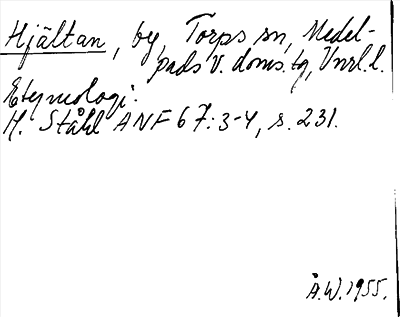 Hjältan, by, Torps sn, Medel-
pads v. doms. tg, Vnrl. l.
Etymologi.
H. Ståhl ANF 67:3-4, s. 231.
Å.W. 1955.